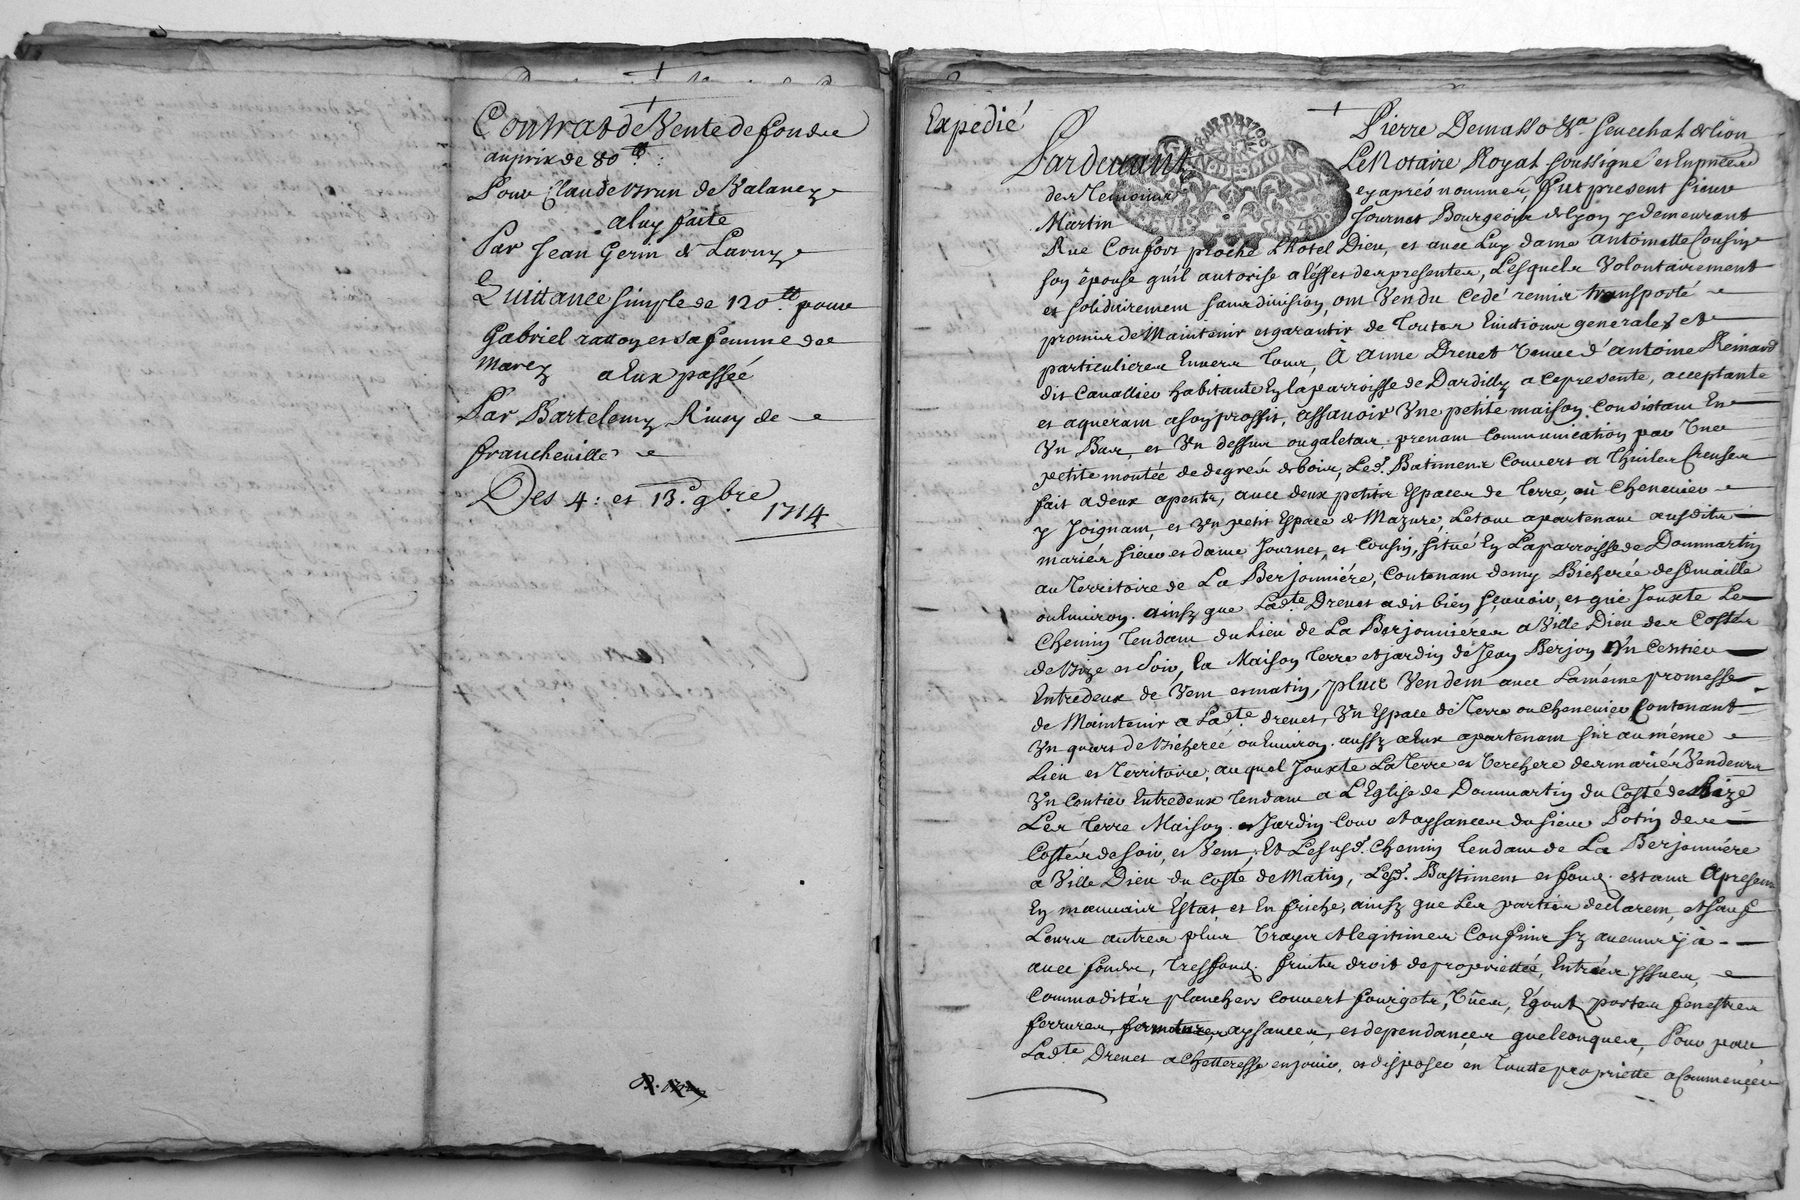 Contrat de Vente de fonds
au prix de 80 ₶
Pour Claude Brun de Valanez
a luy faite
Par Jean Gerin de
Quittance simple de 120 ₶ pour
Gabriel ratton et sa femme de
Marez a Eux passée
Par Bartelomy de
francheville
Des 4: et 13e 9bre
1714
Expedié
Pierre Demasso Senechal de Lion
Pardevant Le Notaire Royal soussigné et En presence
des Temoins cy apres nommés, fut present sieur
Martin Journet Bourgeois de Lyon y demeurant
Rue Confort proche L'hotel Dieu, et avec Luy dame antoinette Cousin
son épouse qu'il autorise a l'effet des presentes, Lesquels Volontairement
et solidairement sans division, ont Vendu cedé remis transporté
promis de Maintenir et garantir de Toutes Evictions generales et
particulieres Envers Tous, À Anne Drevet Veuve d'antoine Reinard
dit Cavallier habitante En la parroisse de Dardilly a ce presente, acceptante
et aquerant a son proffit, assavoir Vne petite maison consistant En
Vn Bas, et Vn dessus ou galetas prenant communication par Vne
petite montée de degrés de bois, Led. Batiment couvert a Thuiles Creuses
fait a deux apents, avec deux petits Espaces de Terre, ou Chenevier
y Joignant, et Vn petit Espace de Mazure, Le tout apartenant ausdits
mariés sieur et dame Journet, et Cousin, situé En La parroisse de Dommartin
au Territoire de La Berjonniére, Contenant demy Bicherée de semaille
ou Environ, ainsy que Lad.te Drevet a dit bien sçavoir, et que Jouxte Le
Chemin Tendant du Lieu de La Berjonniére a Ville Dieu des Costés
de Bize et Soir, la Maison Terre et jardin de Jean Berjon Vn Centier
Entredeux de Vent et matin, plus Vendent avec La méme promesse
de Maintenir a Lad.te drevet, Vn Espace de Terre ou Chenevier Contenant
Vn quart de Bicherée ou Environ aussy a Eux apartenant sis au méme
Lieu et Territoire, auquel Jouxte La Terre et Verchere des mariés Vendeurs
Vn Centier Entredeux Tendant a L'Eglise de Dommartin du Costé de Bize
Les Terre Maison et Jardin Cour et aysances du sieur Potin des
Costés de soir, et Vent, Et Le susd. Chemin Tendant de La Berjonniére
a Ville Dieu du Costé de Matin, Lesd. Bastiment et fonds estant a present
En mauvais Estat et En friche, ainsy que Les parties declarent, et sauf
Leurs autres plus Vrays et legitimes Confins sy aucuns y a
avec fonds, Tresfonds fruits droit de proprietée, Entrées yssues,
Commodités planchers Couvert Vües, Égout, portes fenestres
ferrures, fermetures, aysances, et dependances quelconques, Pour par
Lad.te Drevet achetteresse en jouir, et disposer en Toutte proprieté a Commencer